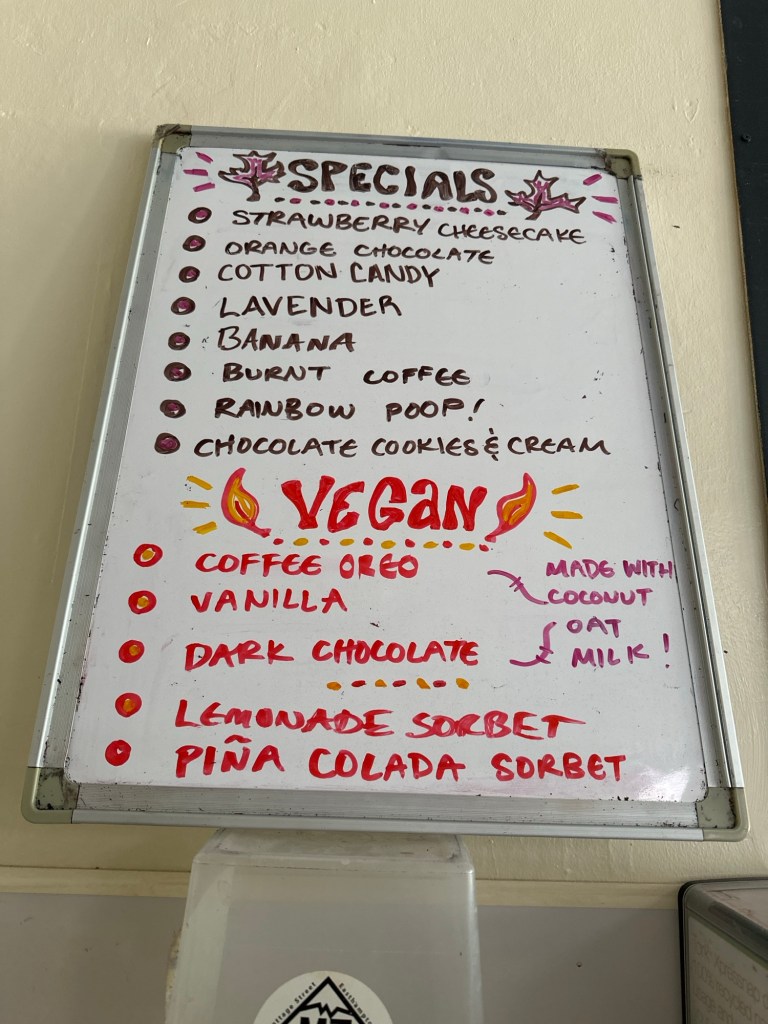 SPECIALS
STRAWBERRY CHEESECAKE
ORANGE CHOCOLATE
COTTON CANDY
LAVENDER
BANANA
BURNT COFFEE
RAINBOW POOP!
CHOCOLATE COOKIES & CREAM
VEGAN
COFFEE OREO
VANILLA
DARK CHOCOLATE
MADE WITH
COCONUT
OAT
MILK!
LEMONADE SORBET
PIÑA COLADA SORBET